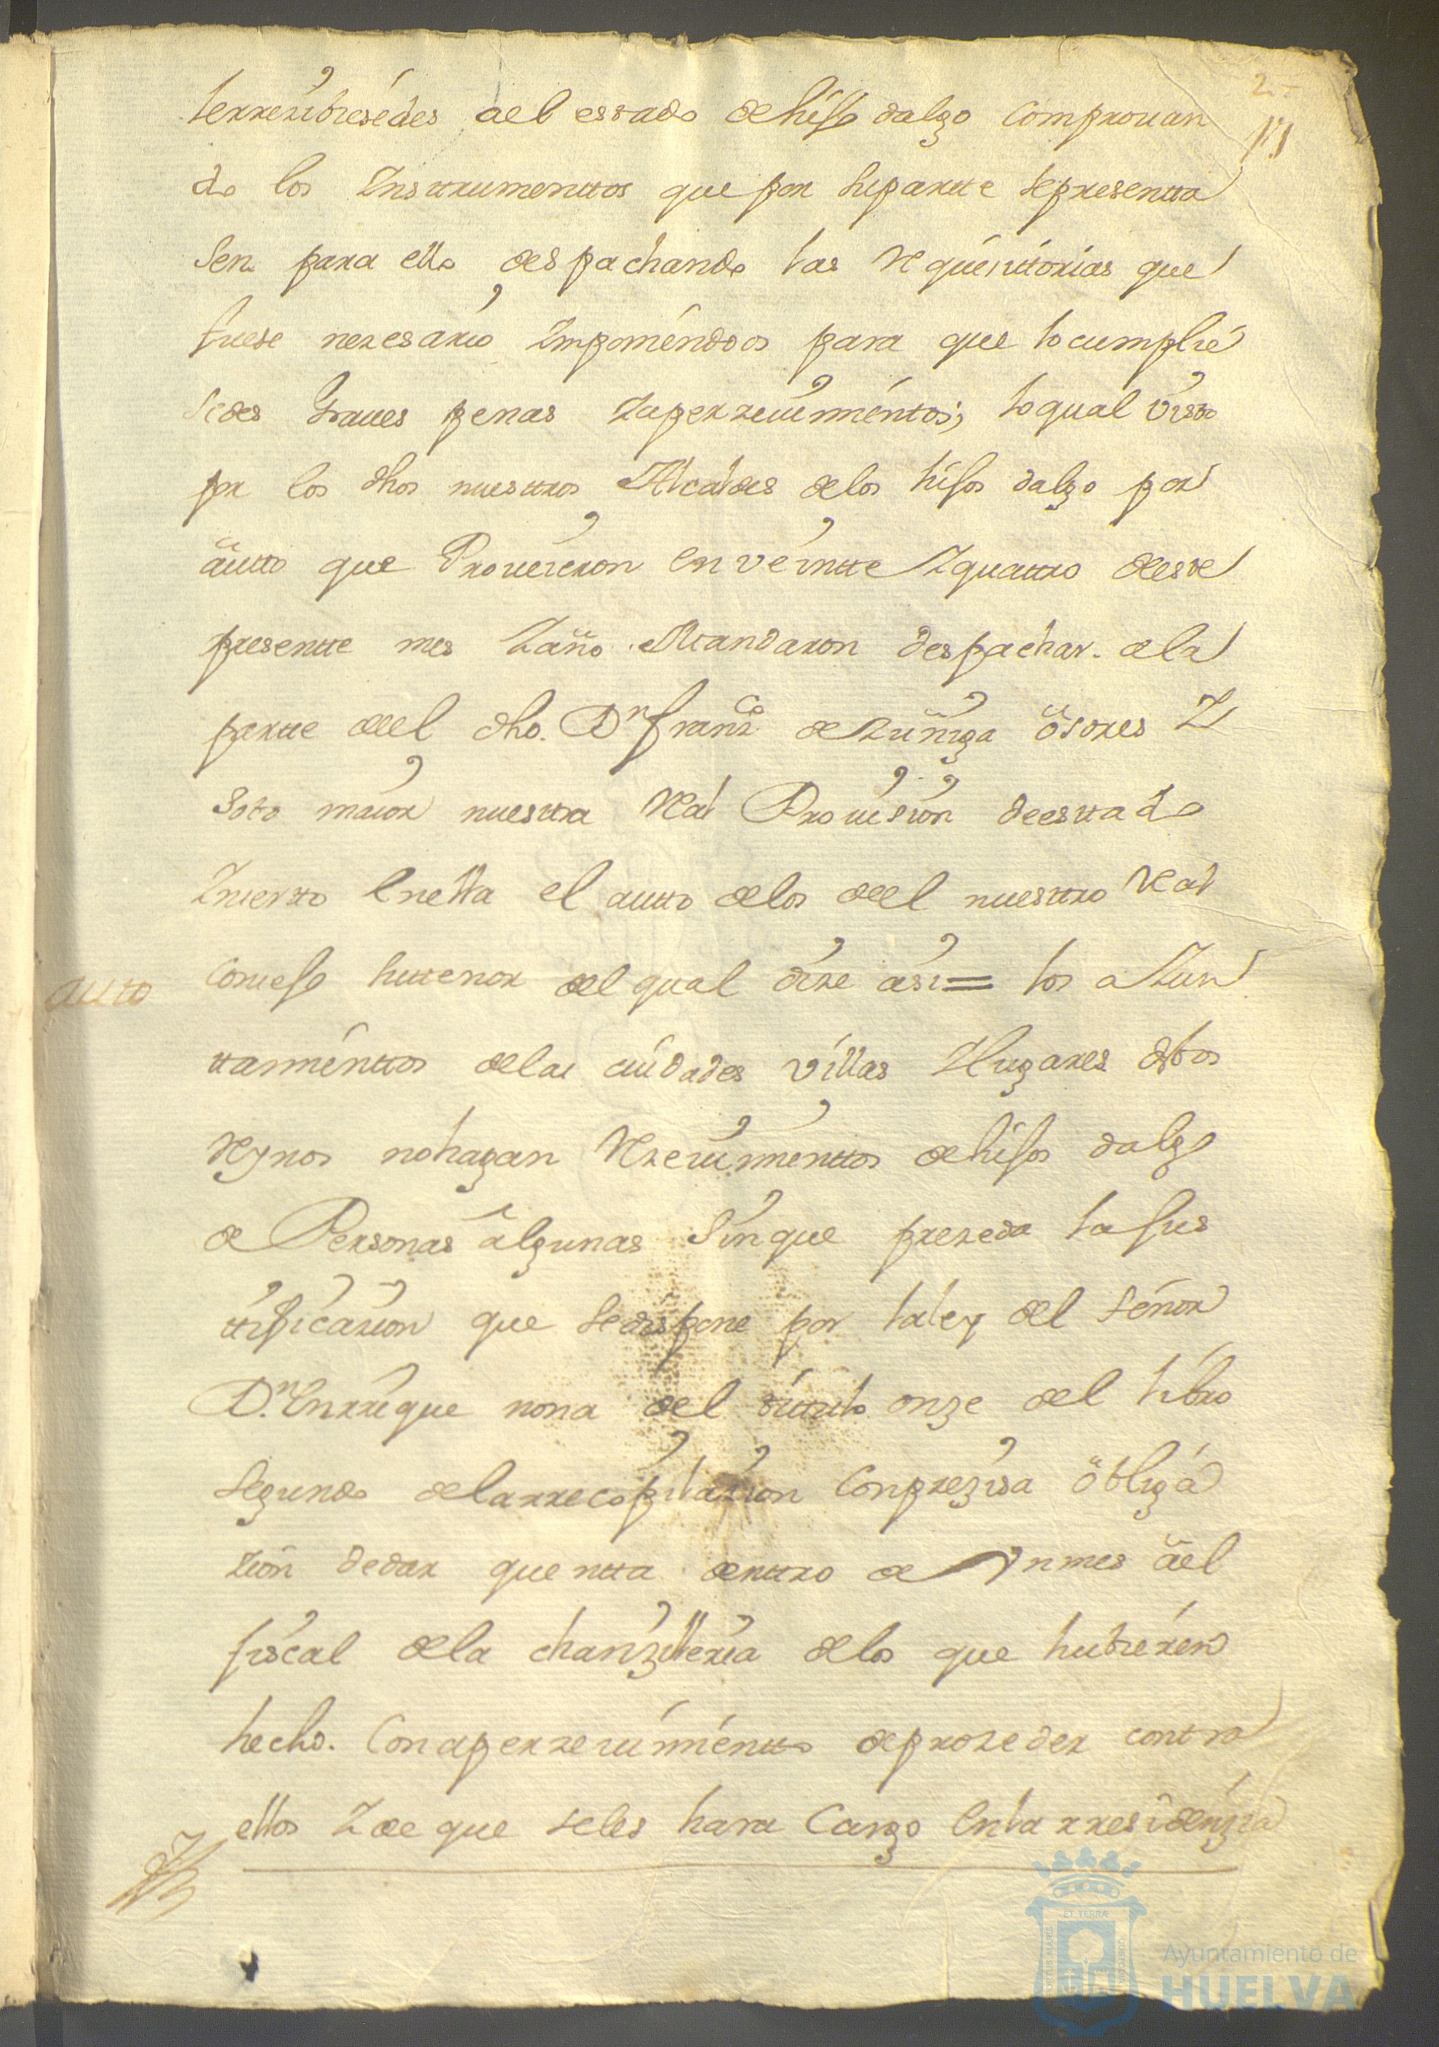 2
le rrezibiesedes ael estado de hijo dalgo comprouan
do los Instrumenttos que por su partte se presentta
sen para ello despachando las Requisittorias que
fuese nezesario Imponiendoos para que lo cumplie
sedes graues penas Zaperzeuimientos; lo qual visto
por los dhos nuesttros Alcaldes de los hijos dalgo por
autto que Proueieron en veintte Zquattro deeste
presentte mes Zaño Mandaron despachar a la
partte deel dho. Dn franzco de zuñiga osores Z
soto maior nuestra Real Prouision deesttado
Zniertto enella el autto delos deel nuesttro Real
auto
Consejo su ttenor del qual dize asi = los aZun
ttamienttos delas ciudades villas Zlugares dstos
Reynos no hagan Rezeuimienttos de hijos dalgo
de Personas algunas sin que prezeda la Jus
ttificazion que se dispone por la ley del señor
Dn. Enrrique nona del titulo onze del libro
segundo de la rrecopilazion Con prezisa obliga
zion de dar quentta denttro de Vn mes ael
fiscal de la chanzilleria de los que hubieren
hecho. Con aperzeuimientto de prozeder contra
ellos Z de que se les hara Cargo En la rresidenzia
ET TERRÆ
Ayuntamiento de
HUELVA